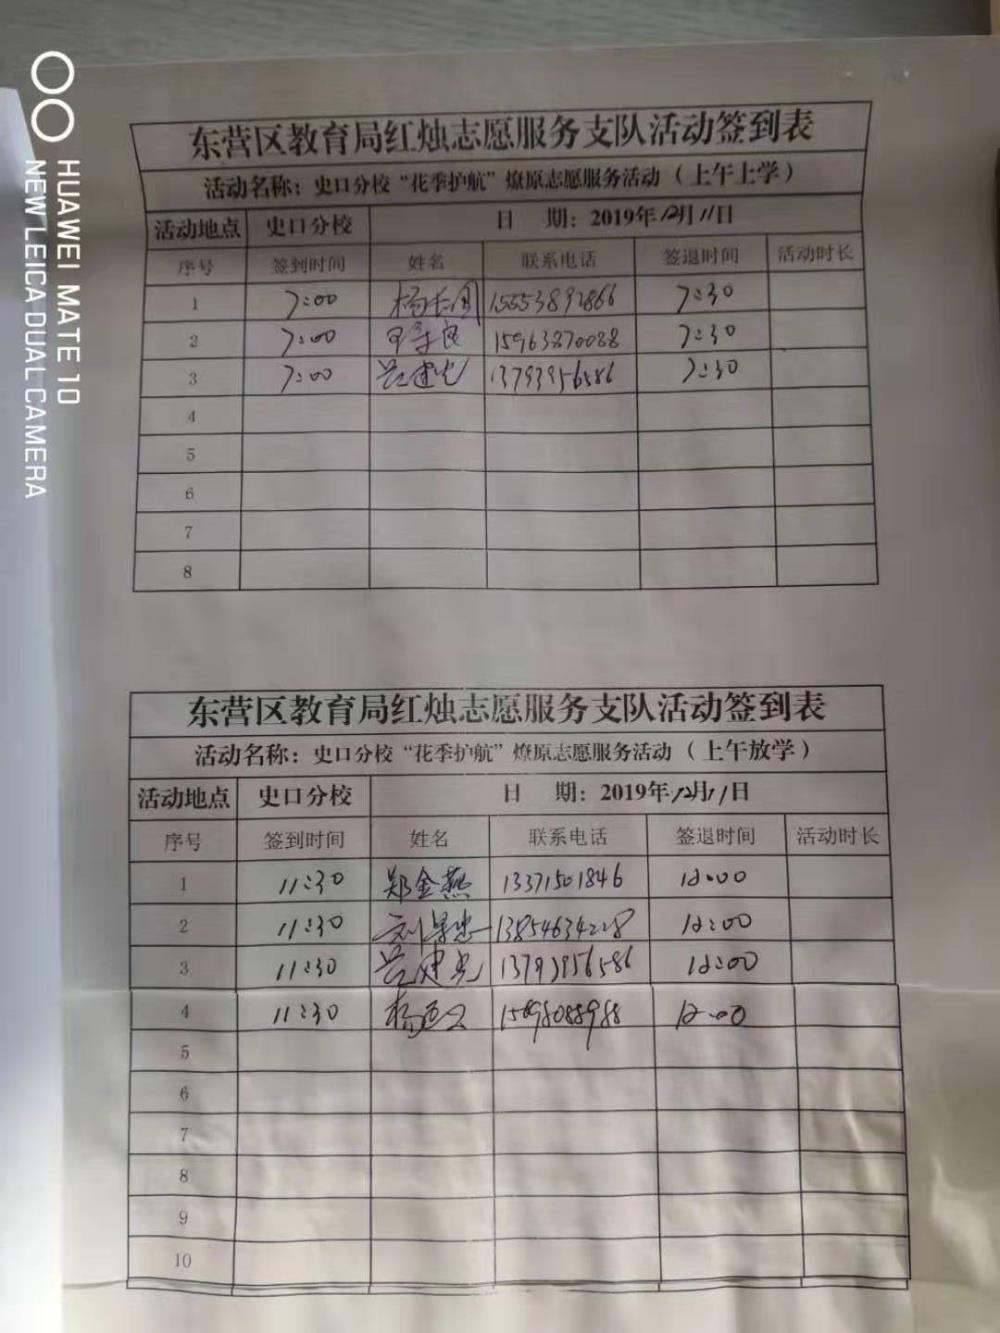 HUAWEI MATE 10
NEW LEICA DUAL CAMERA
东营区教育局红烛志愿服务支队活动签到表
活动名称：史口分校“花季护航”燎原志愿服务活动（上午上学）
活动地点 史口分校 日 期：2019年12月11日
序号 签到时间 姓名 联系电话 签退时间 活动时长
1 7:00 15553892866 7:30
2 7:00 15963870088 7:30
3 7:00 13793956586 7:30
4
5
6
7
8
东营区教育局红烛志愿服务支队活动签到表
活动名称：史口分校“花季护航”燎原志愿服务活动（上午放学）
活动地点 史口分校 日 期：2019年12月11日
序号 签到时间 姓名 联系电话 签退时间 活动时长
1 11:30 郑金燕 13371501846 12:00
2 11:30 13854634228 12:00
3 11:30 13793956586 12:00
4 11:30 12:00
5
6
7
8
9
10